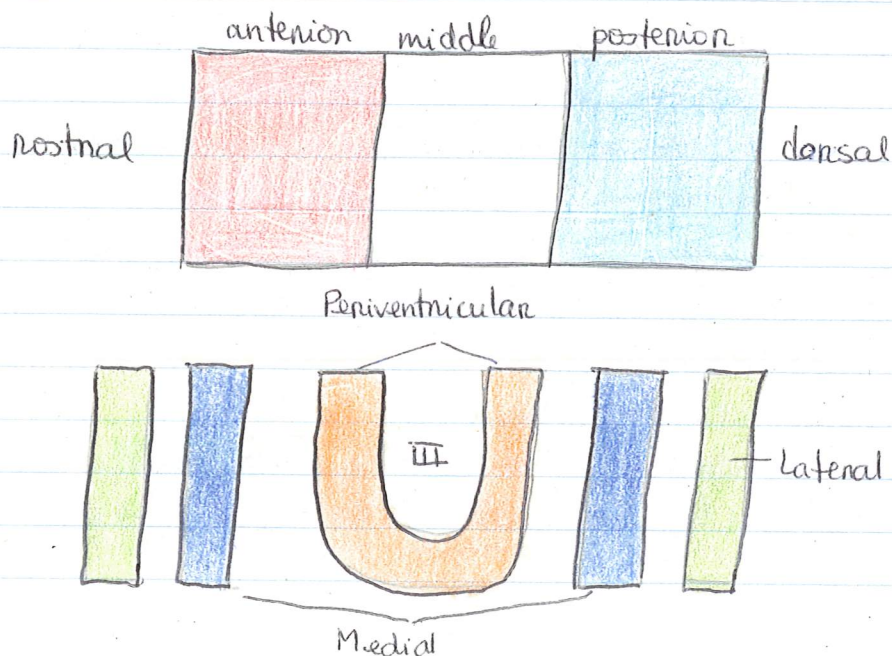 anterior middle posterior
rostral dorsal
Periventricular
III
Lateral
Medial